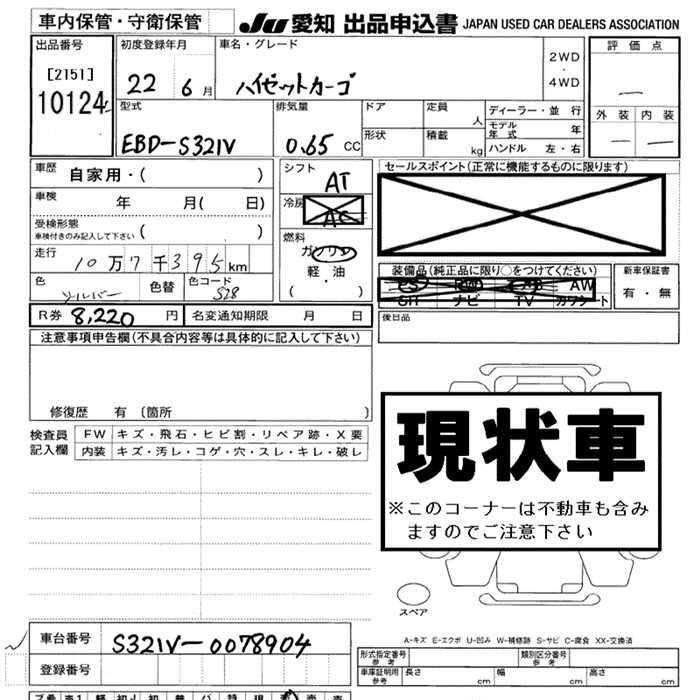 車内保管・守衛保管
JU 愛知 出品申込書 JAPAN USED CAR DEALERS ASSOCIATION
出品番号
[2151]
10124
初度登録年月
22 6月
車名・グレード
ハイゼットカーゴ
2WD
・
4WD
評価点
外装 内装
型式
EBD-S321V
排気量
0.65 CC
ドア
形状
定員 人
積載 kg
ディーラー・並行
モデル年式 年
ハンドル 左・右
車歴 自家用・( )
車検 年 月( 日)
受検形態
車検付きのみ記入して下さい ( )
走行
10万7千395km
色 シルバー
色替
色コード S28
シフト
AT
冷房
AC
燃料
ガソリン
軽・油
( )
セールスポイント(正常に機能するものに限ります)
装備品(純正品に限り○をつけてください)
PS PW AB AW
SR ナビ TV カワシート
新車保証書
有・無
後日品
R券 8,220 円
名変通知期限 月 日
注意事項申告欄(不具合内容等は具体的に記入して下さい)
修復歴 有 〔箇所 〕
検査員記入欄
FW キズ・飛石・ヒビ割・リペア跡・X要
内装 キズ・汚レ・コゲ・穴・スレ・キレ・破レ
現状車
※このコーナーは不動車も含み
ますのでご注意下さい
スペア
A-キズ E-エクボ U-凹み W-補修跡 S-サビ C-腐食 XX-交換済
車台番号 S321V-0078904
登録番号
形式指定番号 参考
類別区分番号 参考
車庫証明用 参考 長さ cm 幅 cm 高さ cm